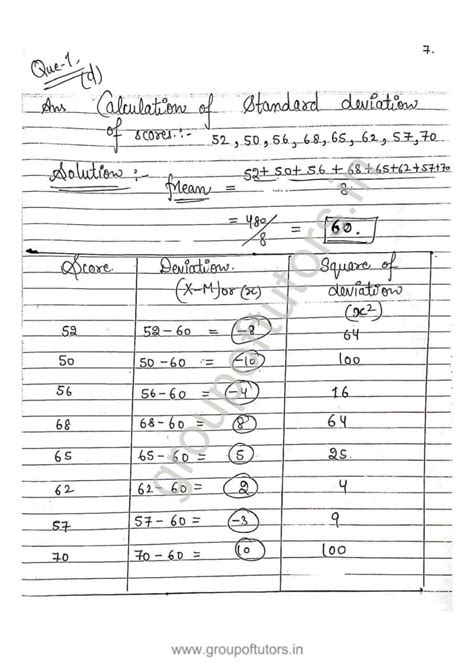 7.
Que-1.
(d)
Ans Calculation of Standard deviation
of scores:- 52, 50, 56, 68, 65, 62, 57, 70
Solution :- Mean = 52+50+56+68+65+62+57+70
8
= 480/8 = 60.
Score Deviation. Square of
(X-M) or (x) deviation
(x²)
52 52-60 = -8 64
50 50-60 = -10 100
56 56-60 = -4 16
68 68-60 = 8 64
65 65-60 = 5 25.
62 62-60 = 2 4
57 57-60 = -3 9
70 70-60 = 10 100
groupoftutors.in
www.groupoftutors.in